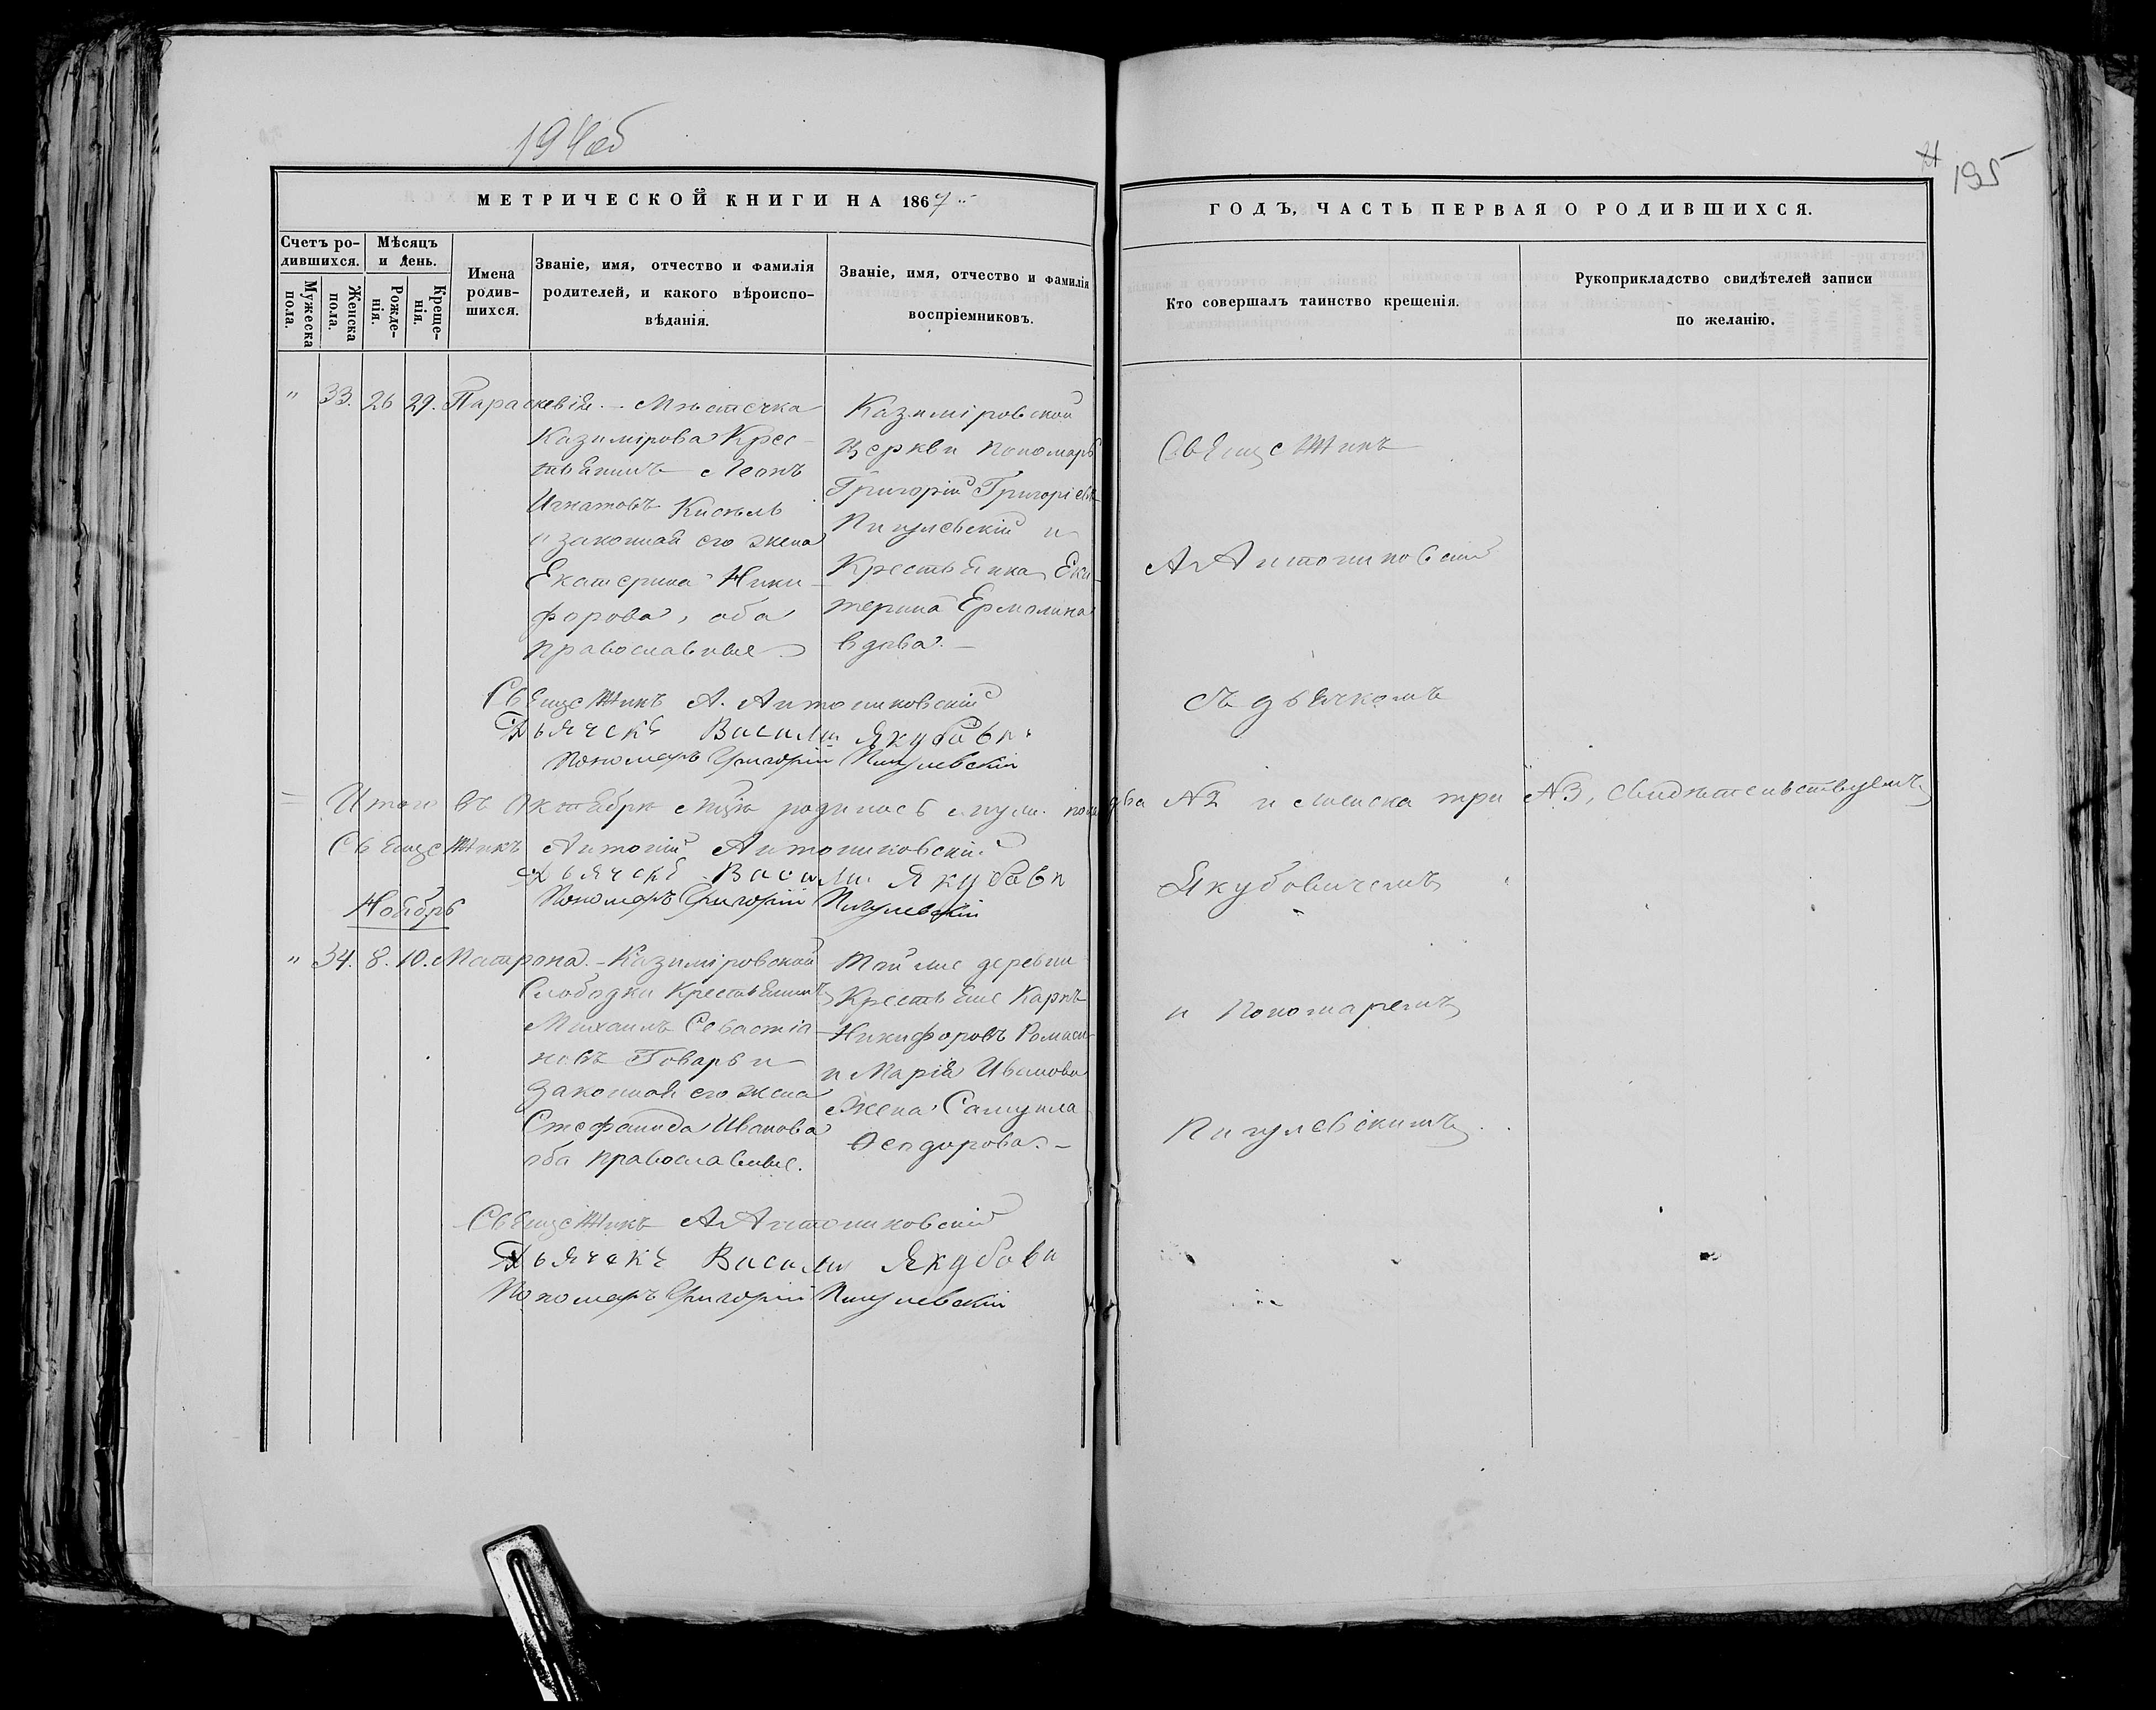 194об
21 195
МЕТРИЧЕСКОЙ КНИГИ НА 1867
Счетъ ро-
дившихся.
Мѣсяцъ
и день.
Мужеска
пола.
Женска
пола.
Рожде-
нія.
Креще-
нія.
Имена
родив-
шихся.
Званіе, имя, отчество и фамилія
родителей, и какого вѣроиспо-
вѣданія.
Званіе, имя, отчество и фамилія
воспріемниковъ.
" 33. 26 29. Параскевія. – Мѣстечка
Казимірова Крес-
тьянинъ Леонъ
Игнатовъ Кисель
и законная его жена
Екатерина Ники-
форова, оба
православные.
Казиміровской
Церкви Пономарь
Григорій Григоріевъ
Пигулевскій и
Крестьянка Ека-
терина Ермолина
вдова. –
Священникъ А. Антониковскій
Дьячекъ Васили Якубови
Пономарь Григорій Пигулевскій
Итого въ Октябрѣ мцѣ родилось муж. пола два №2 и женска три №3, свидѣтельствуемъ
Священникъ Антоній Антониковскій
Дьячекъ Васили Якубови
Пономарь Григорій Пигулевскій
Ноябрь
" 34. 8. 10. Матрона. – Казиміровской
Слободки Крестьянинъ
Михаилъ Севастіа-
новъ Товарь и
законная его жена
Стефанида Иванова
оба православные.
Той же деревни
Крестьяне Карпъ
Никифоровъ
и Марія Иванова
жена Самуила
Ѳеодорова. –
Священникъ А Антониковскій
Дьячекъ Васили Якубови
Пономарь Григорій Пигулевскій
ГОДЪ, ЧАСТЬ ПЕРВАЯ О РОДИВШИХСЯ.
Кто совершалъ таинство крещенія.
Рукоприкладство свидѣтелей записи
по желанію.
Священникъ
А Антониковскій
съ дьячкомъ
Якубовичемъ
и Пономаремъ
Пигулевскимъ.